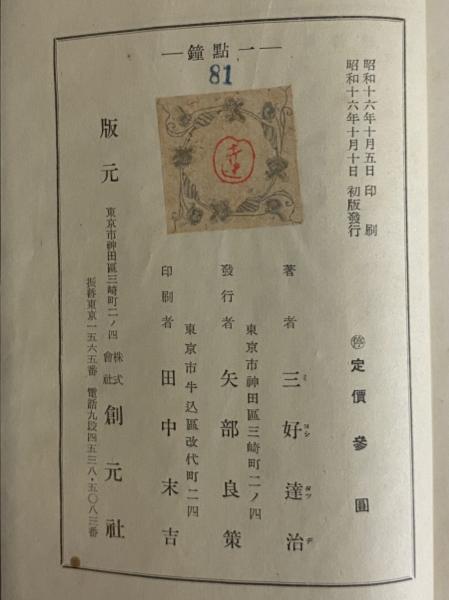 昭和十六年十月五日 印刷
昭和十六年十月十日 初版發行
―一點鐘―
81
㊡定價參圓
著者 三好達治
ミヨシタツヂ
東京市神田區三崎町二ノ四
發行者 矢部良策
東京市牛込區改代町二四
印刷者 田中末吉
版元 東京市神田區三崎町二ノ四 株式會社 創元社
振替東京一五六五番 電話九段四五三八・五〇八三番